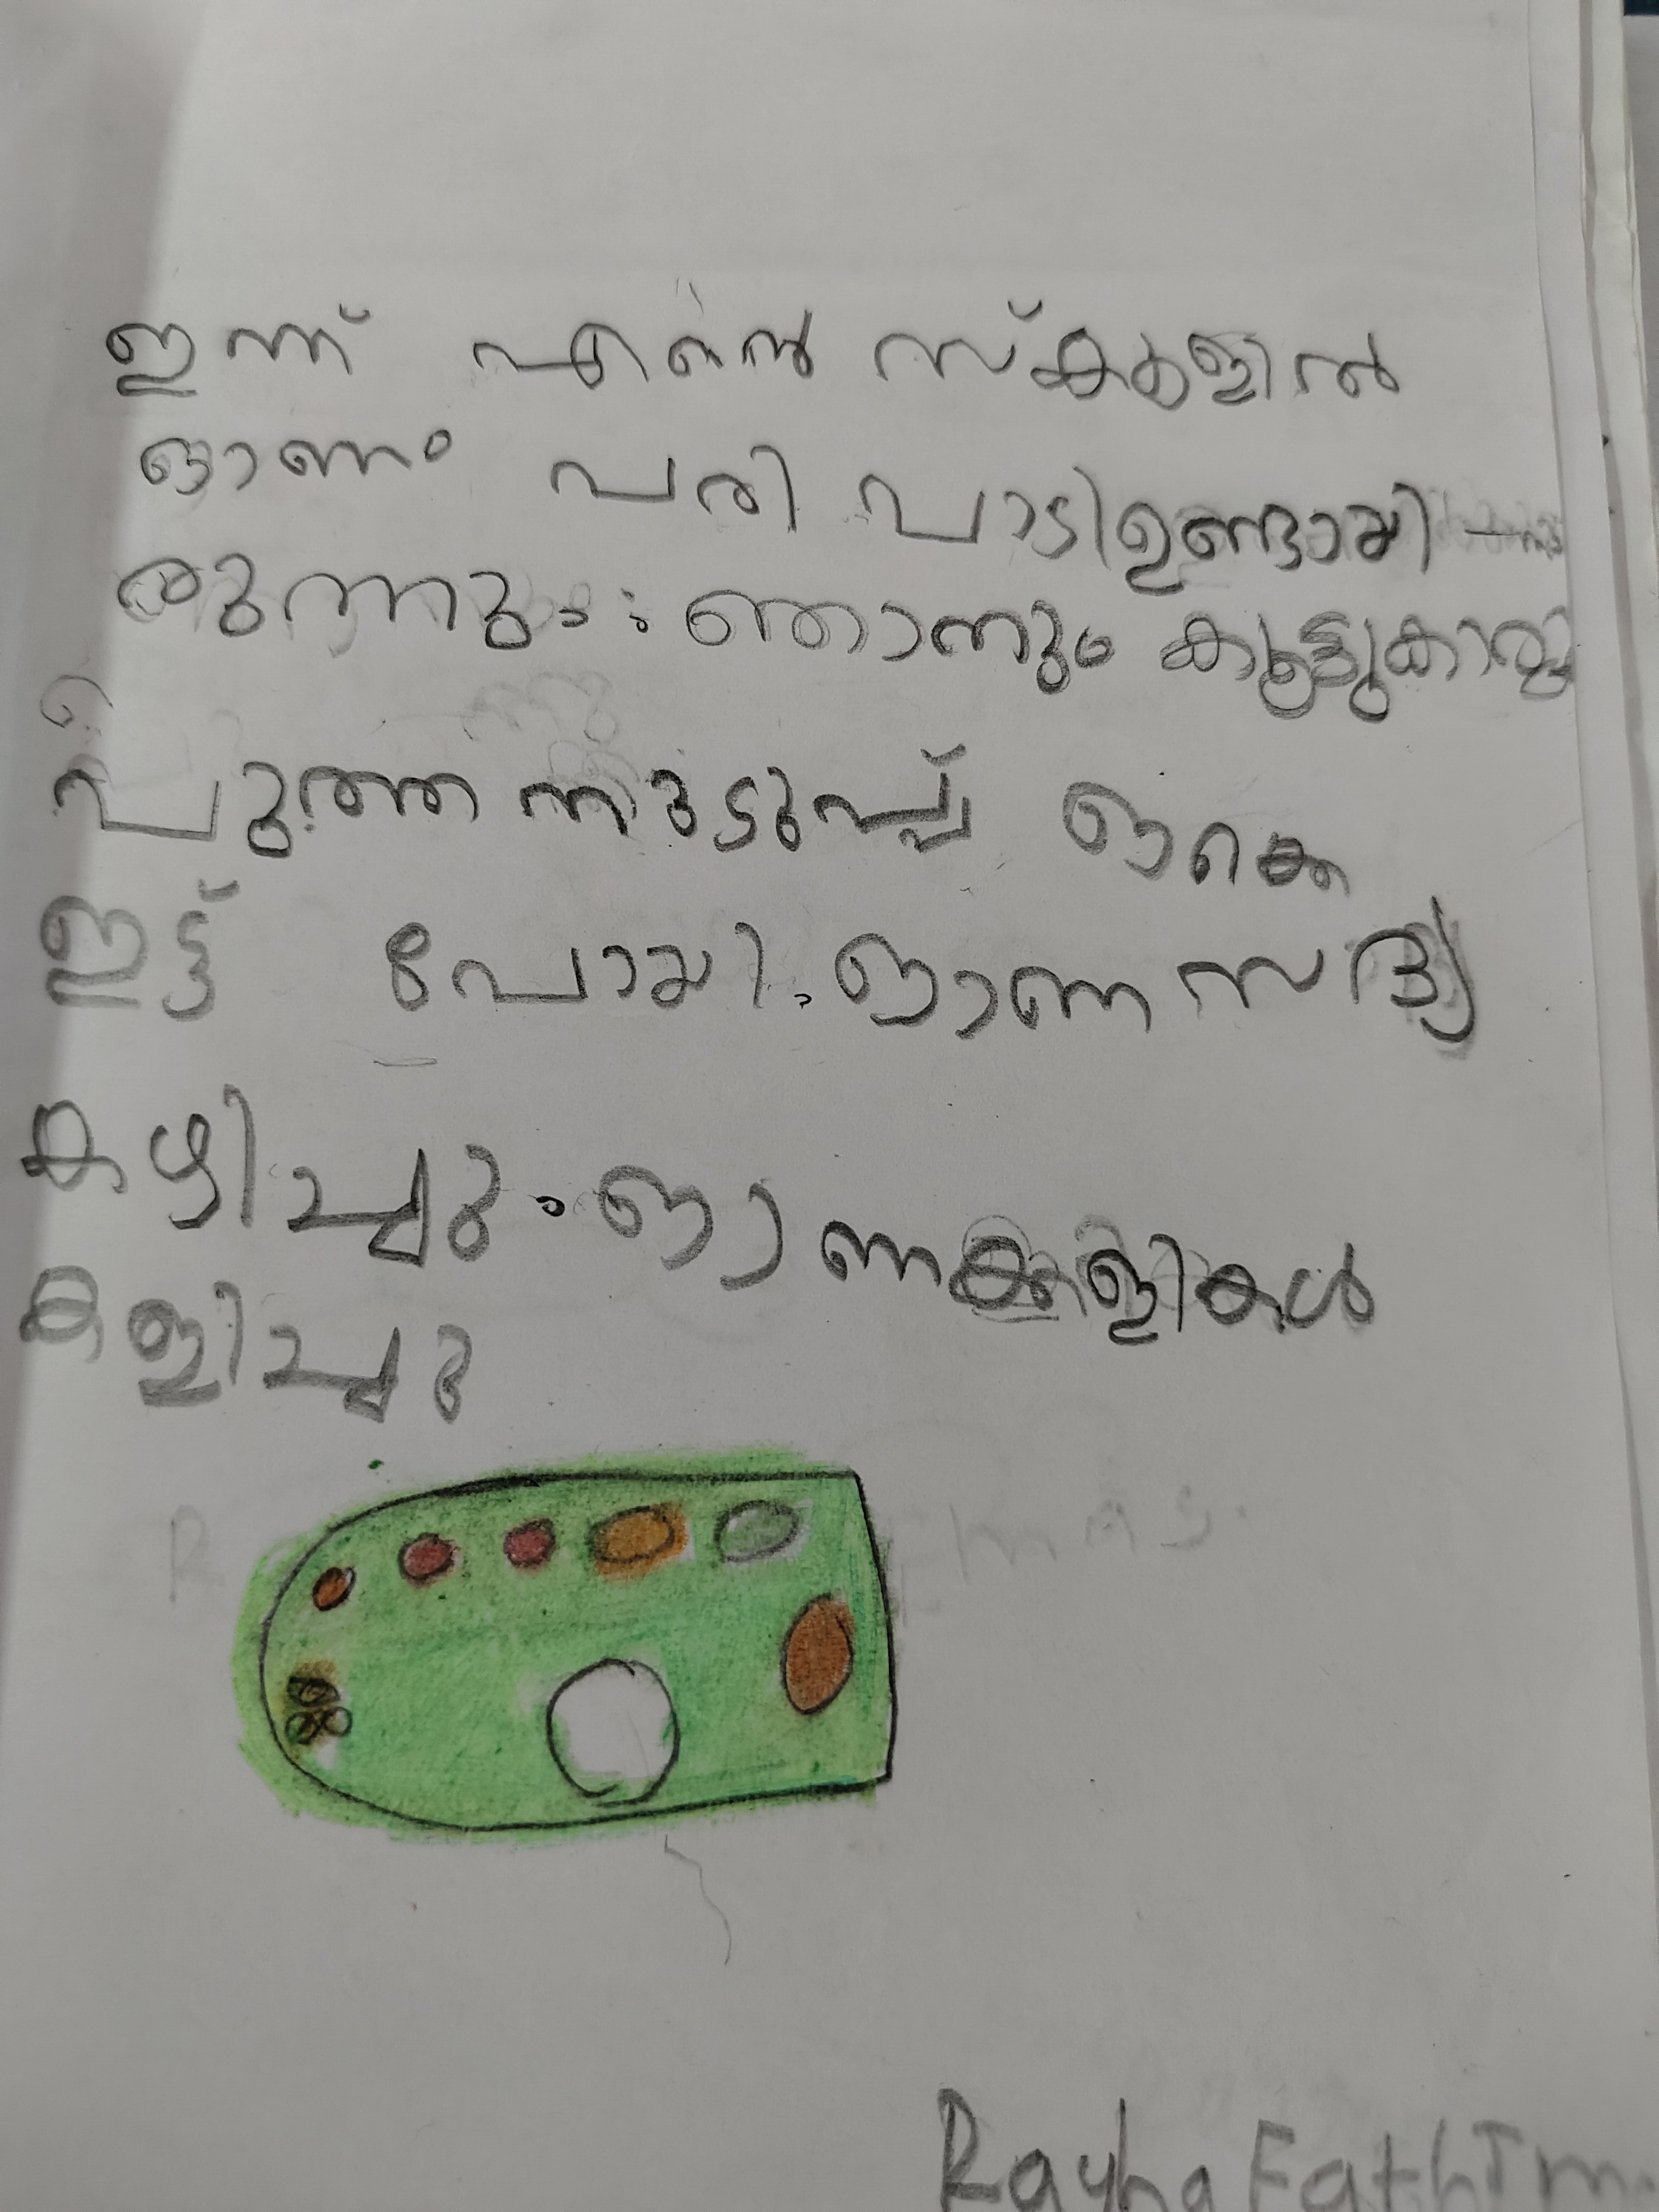 ഇന്ന് എൻെൻ സ്കൂളിൽ
ഓണം പരി പാടി ഉണ്ടായി
രുന്നു. ഞാനും കൂട്ടുകാരും
പുത്തനുടുപ്പ് ഒകെ
ഇട്ട് പോയി. ഓണസദ്യ
കഴിച്ചു. ഓണക്കളികൾ
കളിച്ചു
Rayha Fathim